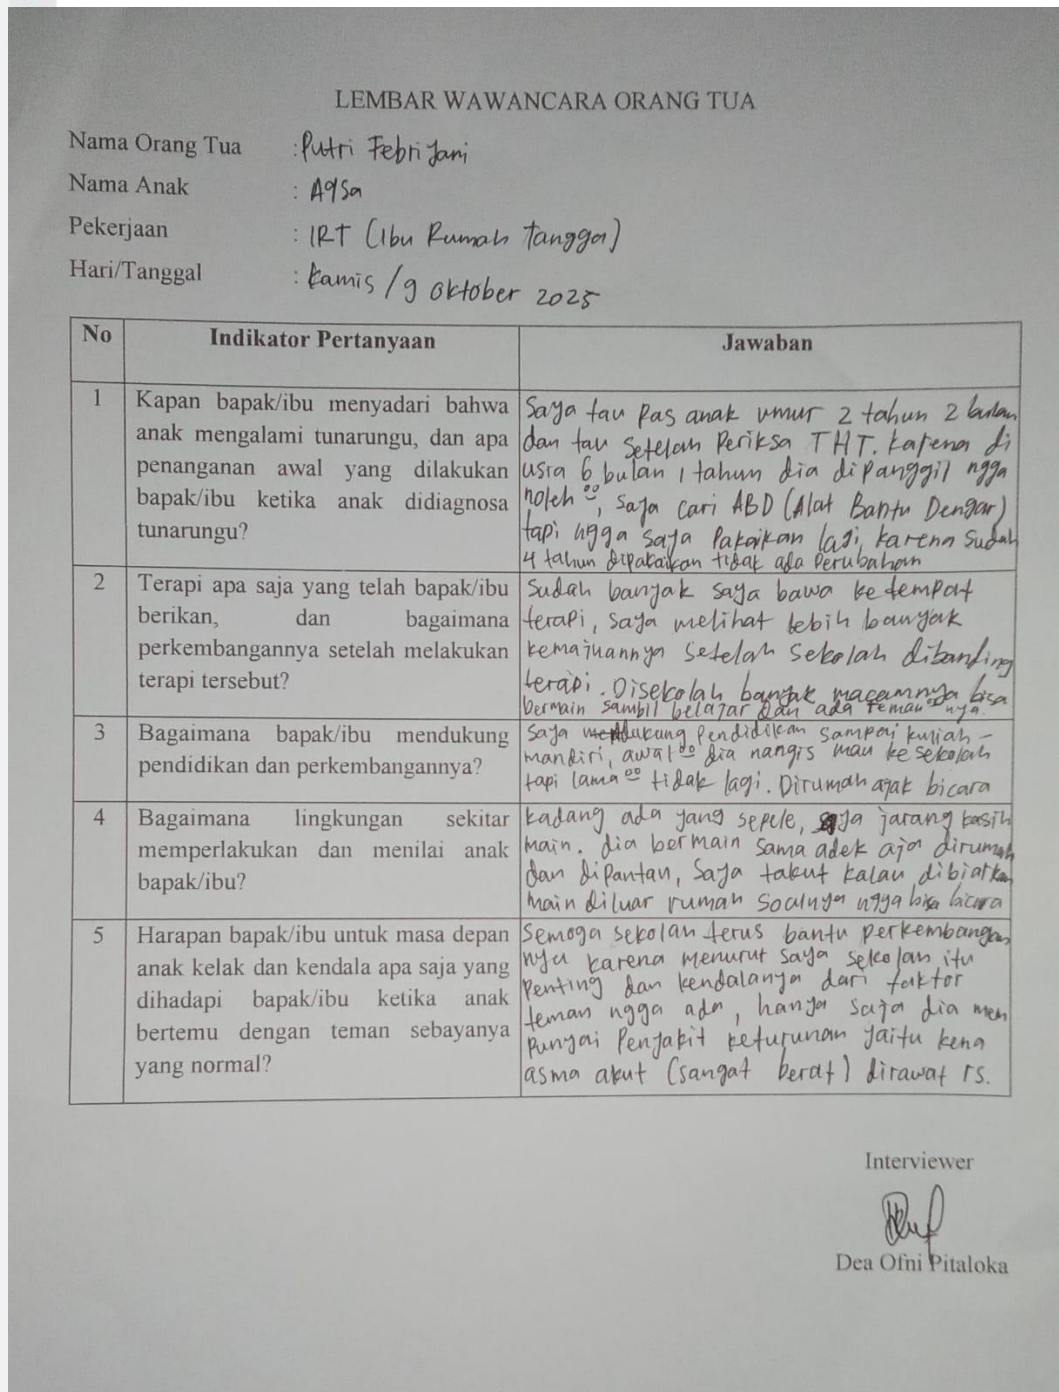 LEMBAR WAWANCARA ORANG TUA
Nama Orang Tua : Putri Febriyani
Nama Anak : Aqsa
Pekerjaan : IRT (Ibu Rumah Tangga)
Hari/Tanggal : Kamis / 9 Oktober 2025
No Indikator Pertanyaan Jawaban
1 Kapan bapak/ibu menyadari bahwa
anak mengalami tunarungu, dan apa
penanganan awal yang dilakukan
bapak/ibu ketika anak didiagnosa
tunarungu?
Saya tau pas anak umur 2 tahun 2 bulan
dan tau setelah Periksa THT. karena di
usia 6 bulan 1 tahun dia dipanggil ngga
noleh", saya cari ABD (Alat Bantu Dengar)
tapi ngga saya Pakaikan lagi, karena sudah
4 tahun dipakaikan tidak ada perubahan
2 Terapi apa saja yang telah bapak/ibu
berikan, dan bagaimana
perkembangannya setelah melakukan
terapi tersebut?
Sudah banyak saya bawa ke tempat
terapi, saya melihat lebih banyak
kemajuannya setelah sekolah dibanding
terapi. Disekolah banyak macamnya bisa
bermain sambil belajar dan ada teman"nya.
3 Bagaimana bapak/ibu mendukung
pendidikan dan perkembangannya?
Saya mendukung Pendidikan sampai kuliah -
mandiri, awal" dia nangis mau ke sekolah
tapi lama" tidak lagi. Dirumah ajak bicara
4 Bagaimana lingkungan sekitar
memperlakukan dan menilai anak
bapak/ibu?
Kadang ada yang sepele, saya jarang kasih
main. dia bermain sama adek aja dirumah
dan dipantau, Saya takut kalau dibiarkan
main diluar rumah soalnya ngga bisa bicara
5 Harapan bapak/ibu untuk masa depan
anak kelak dan kendala apa saja yang
dihadapi bapak/ibu ketika anak
bertemu dengan teman sebayanya
yang normal?
Semoga sekolah terus bantu perkembangan
nya karena menurut saya sekolah itu
Penting dan kendalanya dari faktor
teman ngga ada, hanya saja dia mem
punyai Penyakit keturunan yaitu kena
asma akut (sangat berat) dirawat rs.
Interviewer
Dea Ofni Pitaloka